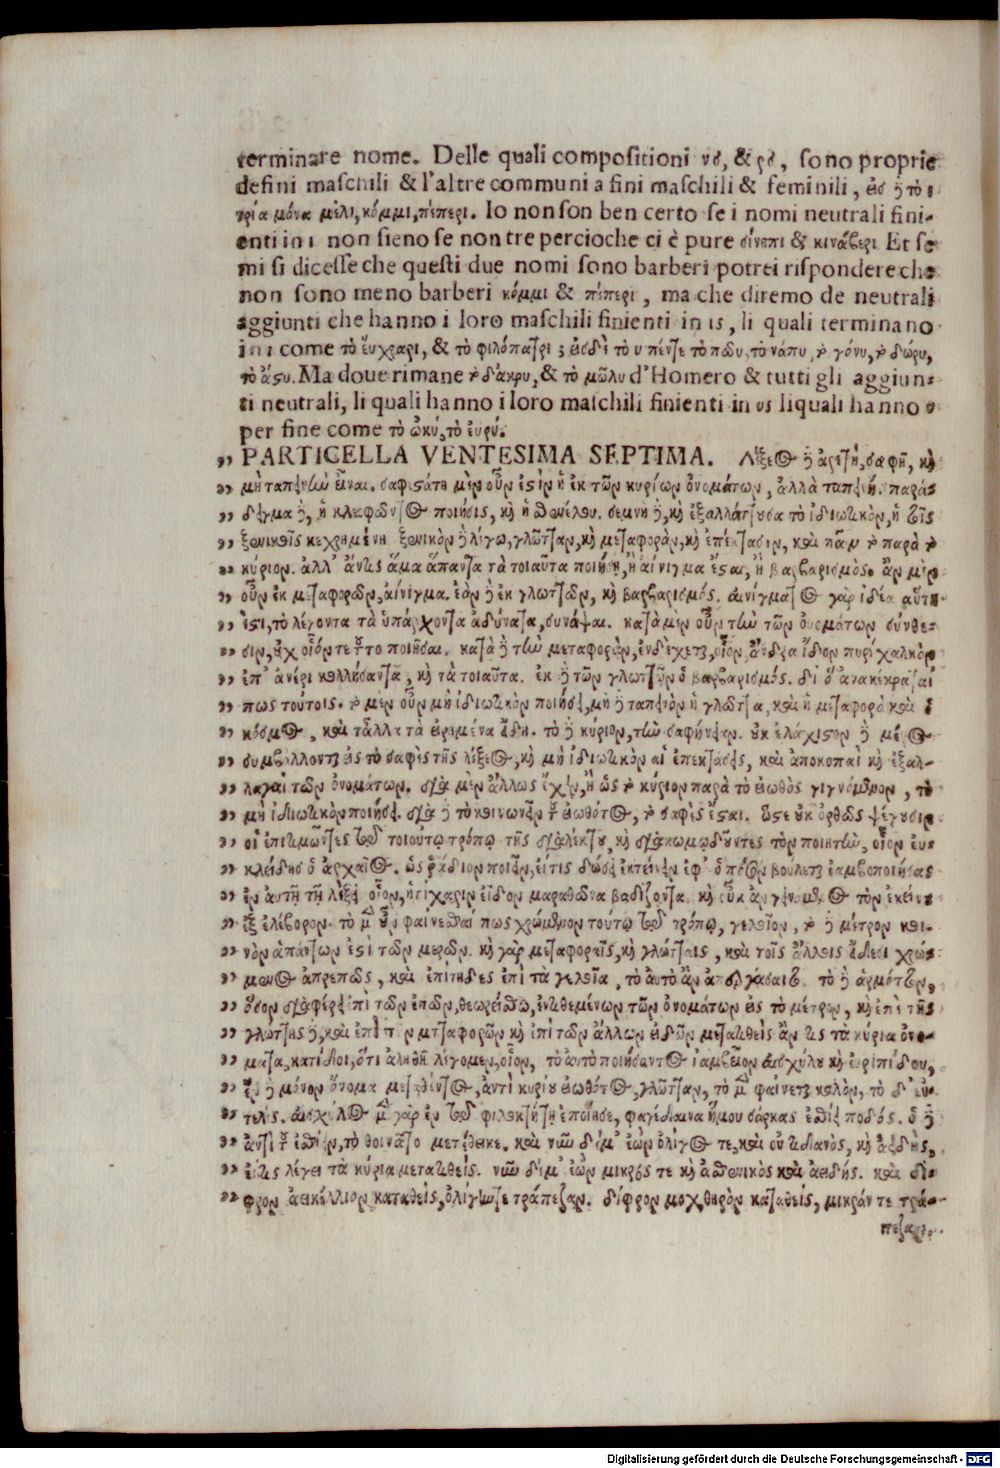 terminare nome. Delle quali compositioni νσ, & ρσ, sono proprie
de fini maschili & l'altre communi a fini maschili & feminili, εἰσ ἢ τὸ ι
τρία μόνα μέλι, κόμμι, πέπερι. Io non son ben certo se i nomi neutrali fini-
enti in ι non sieno se non tre percioche ci è pure σίνηπι & κινάβαρι Et se
mi si dicesse che questi due nomi sono barberi potrei rispondere che
non sono meno barberi κόμμι & πέπερι, ma che diremo de neutrali
aggiunti che hanno i loro maschili finienti in ις, li quali terminano
in ι come τὸ ἔυχαρι, & τὸ φιλόπατρι; εἰσ δὲ τὸ υ πέντε τὸ πῶυ, τὸ νάπυ, τὸ γόνυ, τὸ δώρυ,
τὸ ἄστυ. Ma doue rimane τὸ δάκρυ, & τὸ μῶλυ d'Homero & tutti gli aggiun-
ti neutrali, li quali hanno i loro maschili finienti in υς li quali hanno υ
per fine come τὸ ὠκύ, τὸ ἐυρύ.
„ PARTICELLA VENTESIMA SEPTIMA. Λέξεως δὲ ἀρετὴ, σαφῆ, καὶ
„ μὴ ταπεινὴν εἶναι. σαφεστάτη μὲν οὖν ἐστὶν ἡ ἐκ τῶν κυρίων ὀνομάτων, ἀλλὰ ταπεινή. παρά-
„ δειγμα δὲ, ἡ κλεοφῶντος ποίησις, καὶ ἡ σθενέλου. σεμνὴ δὲ, καὶ ἐξαλλάττουσα τὸ ἰδιωτικὸν, ἡ τοῖς
„ ξενικοῖς κεχρημένη ξενικὸν δὲ λέγω, γλῶτταν, καὶ μεταφορὰν, καὶ ἐπέκτασιν, καὶ πᾶν τὸ παρὰ τὸ
„ κύριον. ἀλλ' ἄν τις ἅμα ἅπαντα τὰ τοιαῦτα ποιήσῃ, ἢ αἴνιγμα ἔσται, ἢ βαρβαρισμὸς. ἂν μὲν
„ οὖν ἐκ μεταφορῶν, αἴνιγμα. ἐὰν δὲ ἐκ γλωττῶν, καὶ βαρβαρισμός. αἰνίγματος γὰρ ἰδέα αὕτη
„ ἐστι, τὸ λέγοντα τὰ ὑπάρχοντα ἀδύνατα, συνάψαι. κατὰ μὲν οὖν τὴν τῶν ὀνομάτων σύνθε-
„ σιν, οὐχ οἷόν τε τοῦτο ποιῆσαι. κατὰ δὲ τὴν μεταφορὰν, ἐνδέχεται, οἷον, ἄνδρα ἴδον πυρὶ χαλκὸν
„ ἐπ' ἀνέρι κολλήσαντα, καὶ τὰ τοιαῦτα. ἐκ δὲ τῶν γλωττῶν ὁ βαρβαρισμός. διὸ ἀνακέκραταί
„ πως τούτοις. τὸ μὲν οὖν μὴ ἰδιωτικὸν ποιήσει, μὴ δὲ ταπεινὸν ἡ γλῶττα, καὶ ἡ μεταφορὰ καὶ ὁ
„ κόσμος, καὶ τἆλλα τὰ εἰρημένα εἴδη. τὸ δὲ κύριον, τὴν σαφήνειαν. οὐκ ἐλάχιστον δὲ μέρος
„ συμβάλλονται εἰς τὸ σαφὲς τῆς λέξεως, καὶ μὴ ἰδιωτικὸν αἱ ἐπεκτάσεις, καὶ ἀποκοπαὶ καὶ ἐξαλ-
„ λαγαὶ τῶν ὀνομάτων. διὰ μὲν ἄλλως ἔχειν, ἢ ὡς τὸ κύριον παρὰ τὸ εἰωθὸς γιγνόμενον, τὸ
„ μὴ ἰδιωτικὸν ποιήσει. διὰ δὲ τὸ κοινωνεῖν τοῦ εἰωθότος, τὸ σαφὲς ἔσται. ὥστε οὐκ ὀρθῶς ψέγουσιν
„ οἱ ἐπιτιμῶντες τῷ τοιούτῳ τρόπῳ τῆς διαλέκτου, καὶ διακωμῳδοῦντες τὸν ποιητὴν, οἷον ἐυ-
„ κλείδης ὁ ἀρχαῖος. ὡς ῥάδιον ποιεῖν, εἴ τις δώσει ἐκτείνειν ἐφ' ὁπόσον βούλεται ἰαμβοποιήσας
„ ἐν αὐτῇ τῇ λέξει οἷον, ἤτι χάριν εἶδον μαραθῶνα βαδίζοντα. καὶ οὐκ ἂν γενάμενος τὸν ἐκείνου
„ ἐξ ἐλέβορον. τὸ μὲν οὖν φαίνεσθαί πως χρώμενον τούτῳ τῷ τρόπῳ, γελοῖον, τὸ δὲ μέτρον κοι-
„ νὸν ἁπάντων ἐστὶ τῶν μερῶν. καὶ γὰρ μεταφοραῖς, καὶ γλώτταις, καὶ τοῖς ἄλλοις εἴδεσι χρώ-
„ μενος ἀπρεπῶς, καὶ ἐπίτηδες ἐπὶ τὰ γελοῖα, τὸ αὐτὸ ἂν ἀπεργάσαιτο. τὸ δὲ ἁρμόττον,
„ ὅσον διαφέρει ἐπὶ τῶν ἐπῶν, θεωρείσθω, ἐντιθεμένων τῶν ὀνομάτων εἰς τὸ μέτρον, καὶ ἐπὶ τῆς
„ γλώττης δὲ, καὶ ἐπὶ τῶν μεταφορῶν καὶ ἐπὶ τῶν ἄλλων εἰδῶν μετατιθεὶς ἄν τις τὰ κύρια ὀνό-
„ ματα, κατίδοι, ὅτι ἀληθῆ λέγομεν, οἷον, τὸ αὐτὸ ποιήσαντος ἰαμβεῖον αἰσχύλου καὶ ἐυριπίδου,
„ ἓν δὲ μόνον ὄνομα μεταθέντος, ἀντὶ κυρίου εἰωθότος, γλῶτταν, τὸ μὲν φαίνεται καλὸν, τὸ δ' εὐ-
„ τελές. αἰσχύλος μὲν γὰρ ἐν τῷ φιλοκτήτῃ ἐποίησε, φαγέδαινα ἥ μου σάρκας ἐσθίει ποδός. ὁ δὲ
„ ἀντὶ τοῦ ἐσθίειν, τὸ θοινᾶται μετέθεικε. καὶ νῦν δέ μ' ἐὼν ὀλίγος τε, καὶ οὐτιδανὸς, καὶ ἀειδὴς,
„ εἴ τις λέγει τὰ κύρια μετατιθείς. νῦν δέ μ' ἐὼν μικρός τε καὶ ἀσθενικὸς καὶ ἀειδής. καὶ δί-
„ φρον ἀεικέλλιον καταθεὶς, ὀλίγην τε τράπεζαν. δίφρον μοχθηρὸν καταθεὶς, μικράν τε τρά-
πεζαν.
Digitalisierung gefördert durch die Deutsche Forschungsgemeinschaft - DFG